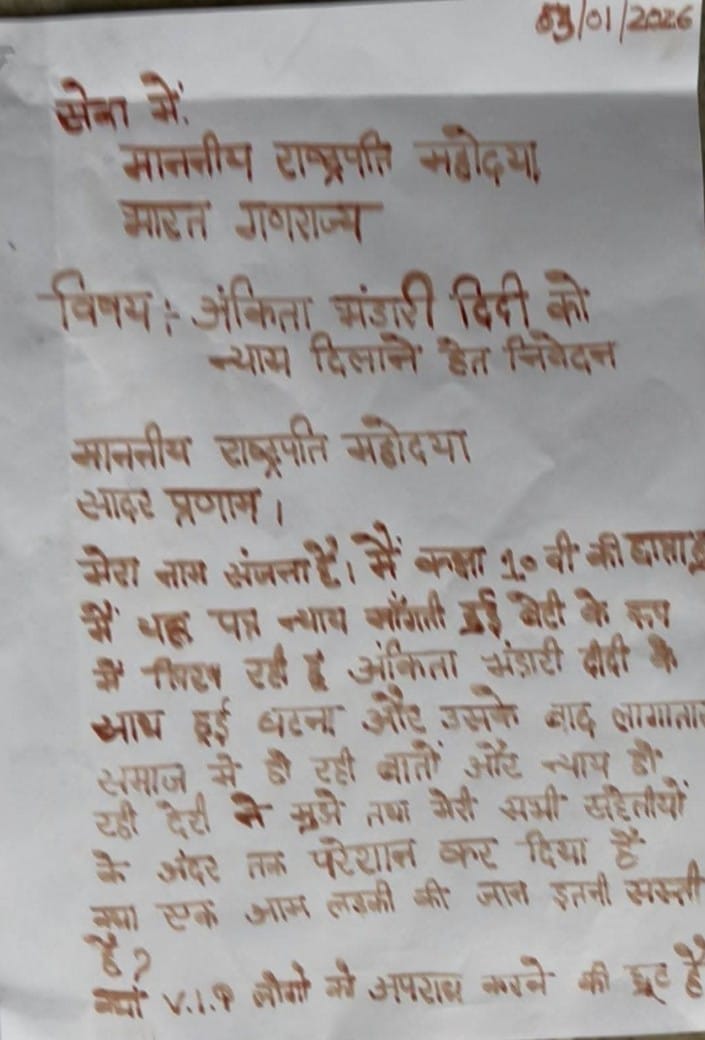 03/01/2026
सेवा में.
माननीय राष्ट्रपति महोदया
भारत गणराज्य
विषय :- अंकिता भंडारी दिदी को
न्याय दिलाने हेत निवेदन
माननीय राष्ट्रपति महोदया
सादर प्रणाम ।
मेरा नाम संजना है। मैं कक्षा 10 वी की छात्रा हू
मैं यह पत्र न्याय माँगती हुई बेटी के रूप
में लिख रही हूं अंकिता भंडारी दीदी के
साथ हुई घटना और उसके बाद लागातार
समाज में हो रही बातों और न्याय हो
रही देरी ने मुझे तथा मेरी सभी सहेलीयों
के अंदर तक परेशान कर दिया है
क्या एक आम लडकी की जान इतनी सस्ती
है?
क्या V.I.P लोगो को अपराध करने की छूट है